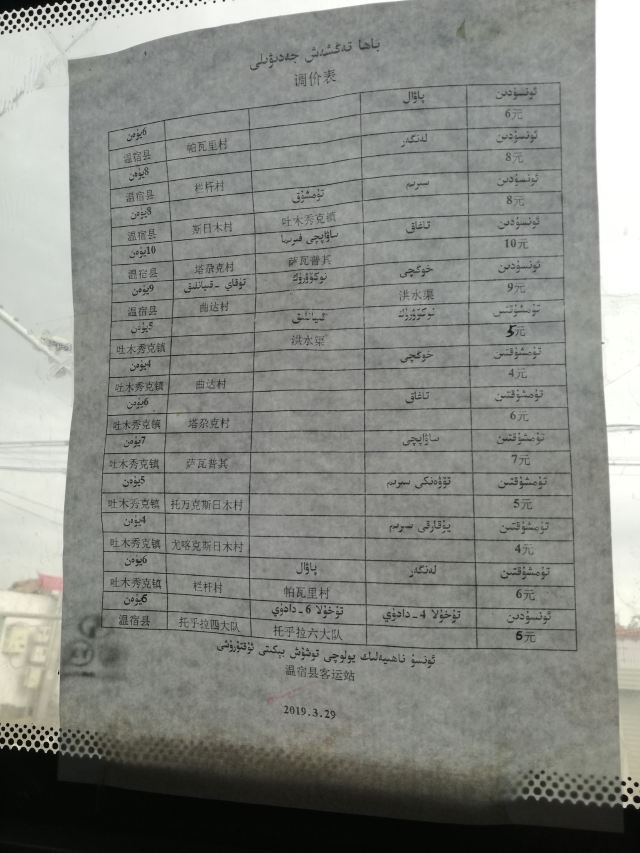 باھا تەڭشەش جەدىۋىلى
调价表
6يۈەن پاۋال ئونسۇدىن
温宿县 帕瓦里村 6元
8يۈەن لەنگەر ئونسۇدىن
温宿县 栏杆村 8元
8يۈەن تۇمشۇق سىرىم ئونسۇدىن
温宿县 斯日木村 吐木秀克镇 8元
10يۈەن ساۋاپچى فىرىما تاغاق ئونسۇدىن
温宿县 塔尕克村 萨瓦普其 10元
9يۈەن توقاي ـ قىيانلىق نوكۇۋرۈك خوگچى ئونسۇدىن
温宿县 曲达村 洪水渠 9元
5يۈەن قىيانلىق نوكۇۋرۈك تۇمشۇقتىن
吐木秀克镇 洪水渠 5元
4يۈەن خوگچى تۇمشۇقتىن
吐木秀克镇 曲达村 4元
6يۈەن تاغاق تۇمشۇقتىن
吐木秀克镇 塔尕克村 6元
7يۈەن ساۋاپچى تۇمشۇقتىن
吐木秀克镇 萨瓦普其 7元
5يۈەن تۆۋەنكى سىرىم تۇمشۇقتىن
吐木秀克镇 托万克斯日木村 5元
4يۈەن يۇقارقى سىرىم تۇمشۇقتىن
吐木秀克镇 尤喀克斯日木村 4元
6يۈەن پاۋال لەنگەر تۇمشۇقتىن
吐木秀克镇 栏杆村 帕瓦里村 6元
6يۈەن توخۇلا 6ـدادۈي توخۇلا 4ـدادۈي ئونسۇدىن
温宿县 托乎拉四大队 托乎拉六大队 5元
ئونسۇ ناھىيەلىك يولوچى توشۇش بېكىتى
温宿县客运站
2019.3.29